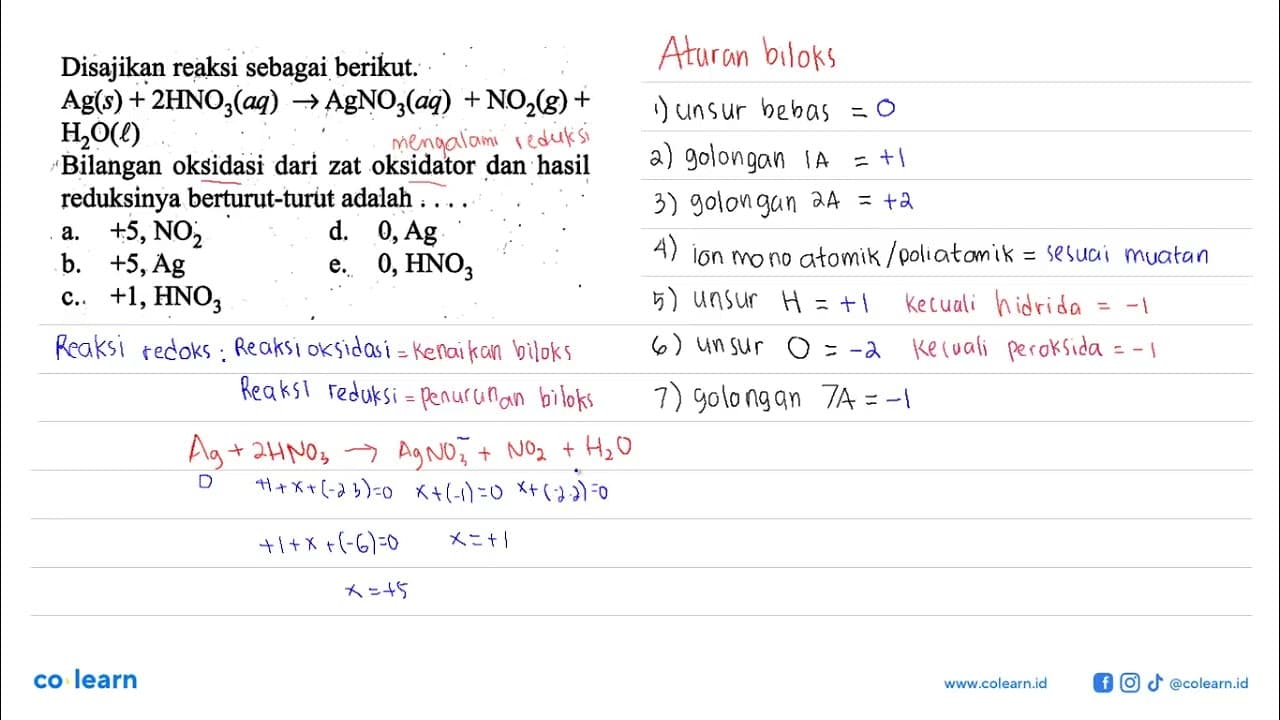 Disajikan reaksi sebagai berikut.
Ag(s) + 2HNO₃(aq) → AgNO₃(aq) + NO₂(g) +
H₂O(ℓ)
mengalami reduksi
Bilangan oksidasi dari zat oksidator dan hasil
reduksinya berturut-turut adalah . . . .
a. +5, NO₂ d. 0, Ag
b. +5, Ag e. 0, HNO₃
c. +1, HNO₃
Reaksi redoks : Reaksi oksidasi = kenaikan biloks
Reaksi reduksi = penurunan biloks
Aturan biloks
1) unsur bebas = 0
2) golongan 1A = +1
3) golongan 2A = +2
4) ion mono atomik/poliatomik = sesuai muatan
5) unsur H = +1 kecuali hidrida = -1
6) unsur O = -2 kecuali peroksida = -1
7) golongan 7A = -1
Ag + 2HNO₃ → AgNO₃⁻ + NO₂ + H₂O
0 +1+x+(-2·3)=0 x+(-1)=0 x+(-2·2)=0
+1+x+(-6)=0 x=+1
x=+5
co learn
www.colearn.id @colearn.id